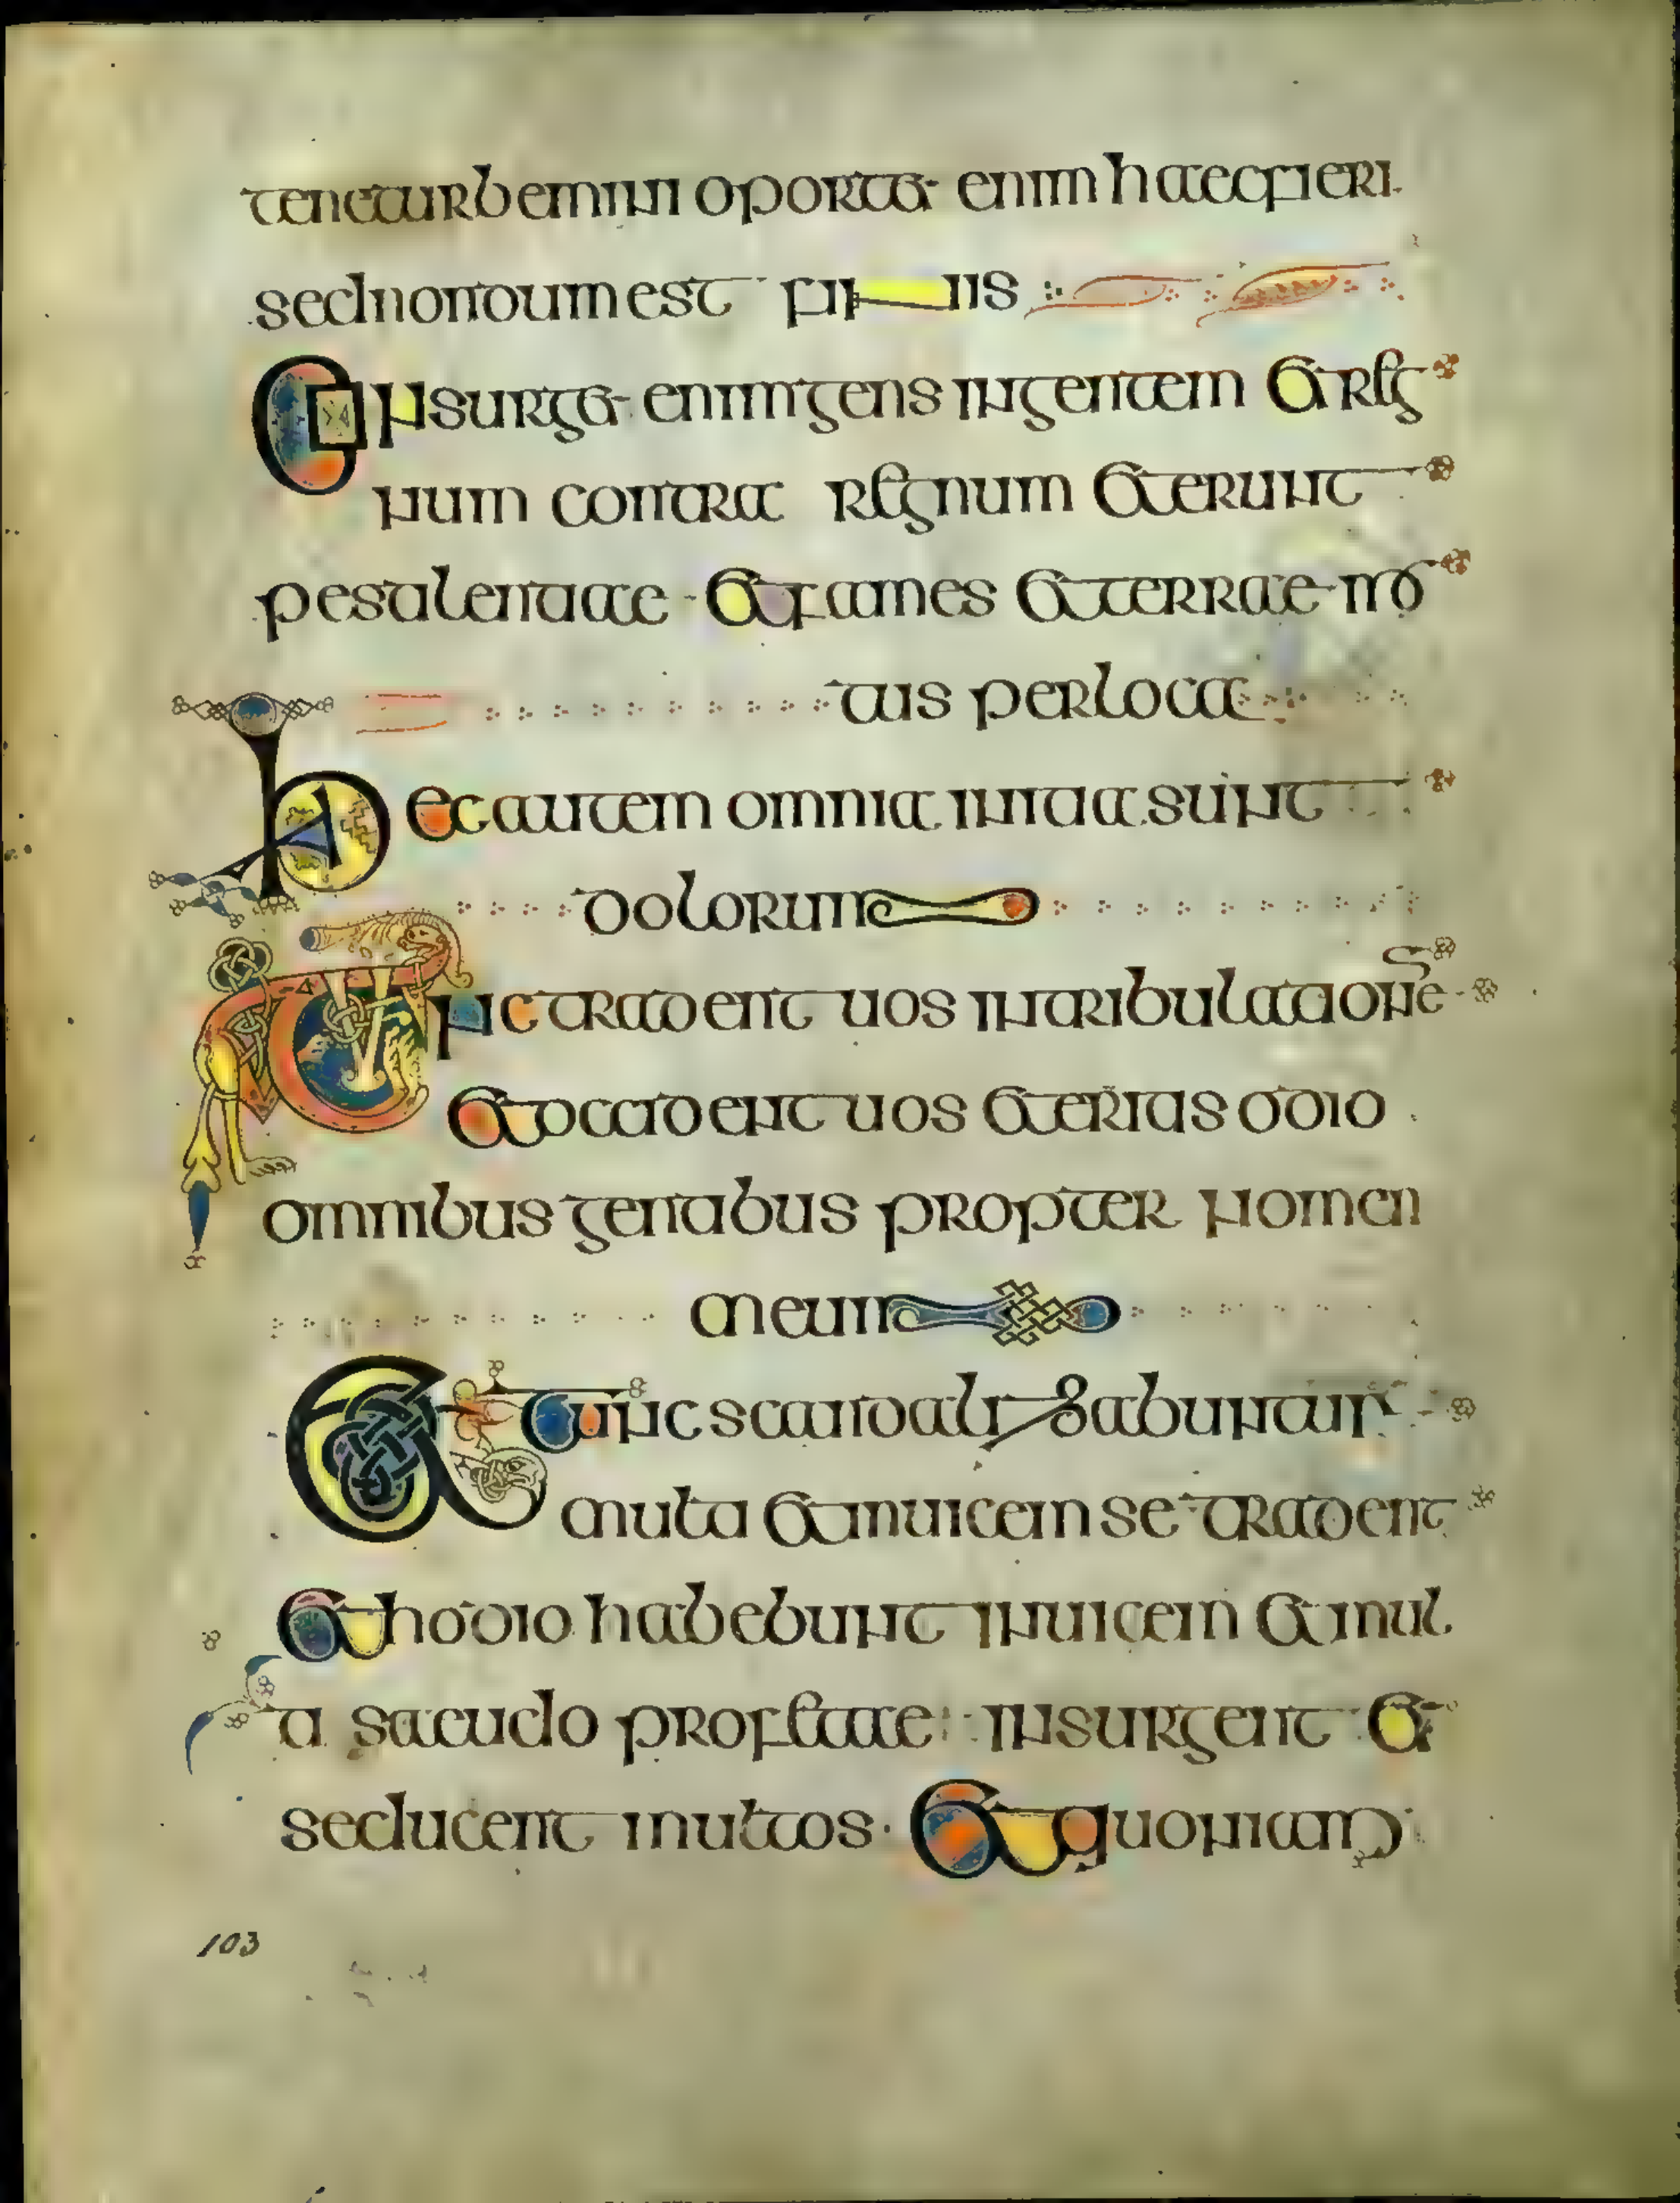 teneturbemini oportet enim haec fieri
sed non dum est finis
Consurget enim gens in gentem et reg
num contra regnum et erunt
pestilentiae et fames et terrae mo
tus per loca
Haec autem omnia initia sunt
dolorum
Tunc tradent uos in tribulatione
et occident uos et eritis odio
omnibus gentibus propter nomen
meum
Et tunc scandalizabuntur
multi et inuicem se tradent
et hodio habebunt inuicem et mul
ti seudo profetae insurgent et
seducent multos et quoniam
103